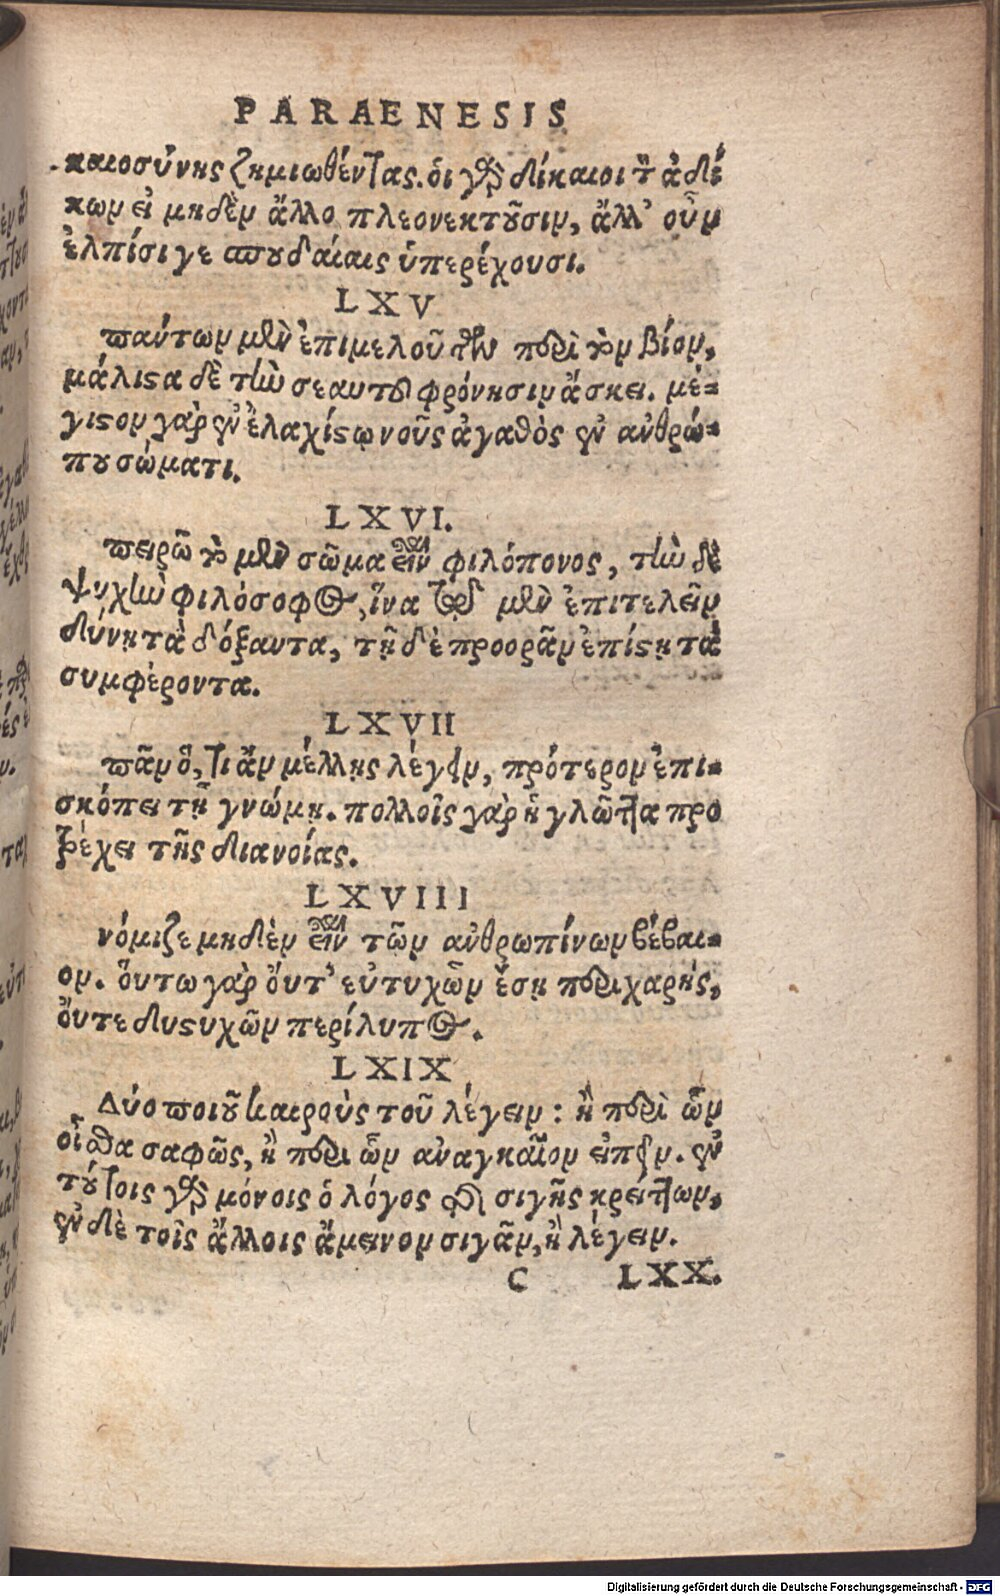 PARAENESIS
καιοσύνης ζημιωθέντας. ὁι γὰρ δίκαιοι τ̃ ἀδί
κων εἰ μηδὲν ἄλλο πλεονεκτοῦσιν, ἄλλ’ οὖν
ἐλπίσι γε σπουδαίαις ὑπερέχουσι.
LXV
πάντων μὲν ἐπιμελοῦ τῶν περὶ τὸν βίον,
μάλιστα δὲ τὴν σεαυτοῦ φρόνησιν ἄσκει. μέ-
γιστον γὰρ ἐν ἐλαχίστῳ νοῦς ἀγαθὸς ἐν ἀνθρώ-
που σώματι.
LXVI.
πειρῶ τὸ μὲν σῶμα εἶναι φιλόπονος, τὴν δὲ
ψυχὴν φιλόσοφος, ἵνα τῷ μὲν ἐπιτελεῖν
δύνῃ τὰ δόξαντα, τῇ δὲ προορᾶν ἐπίστῃ τὰ
συμφέροντα.
LXVII
πᾶν ὅ, τι ἂν μέλλῃς λέγειν, πρότερον ἐπι-
σκόπει τῇ γνώμῃ. πολλοῖς γὰρ ἡ γλῶττα προ
τρέχει τῆς διανοίας.
LXVIII
νόμιζε μηδὲν εἶναι τῶν ἀνθρωπίνων βέβαι-
ον. ὅυτω γὰρ ὄυτ’ εὐτυχῶν ἔσῃ περιχαρής,
ὄυτε δυστυχῶν περίλυπος.
LXIX
Δύο ποιοῦ καιροὺς τοῦ λέγειν: ἢ περὶ ὧν
οἶσθα σαφῶς, ἢ περι ὧν ἀναγκαῖον εἰπεῖν. ἐν
τούτοις γὰρ μόνοις ὁ λόγος τῆς σιγῆς κρείττων,
ἐν δὲ τοῖς ἄλλοις ἄμεινον σιγᾶν, ἢ λέγειν.
C LXX.
Digitalisierung gefördert durch die Deutsche Forschungsgemeinschaft - DFG